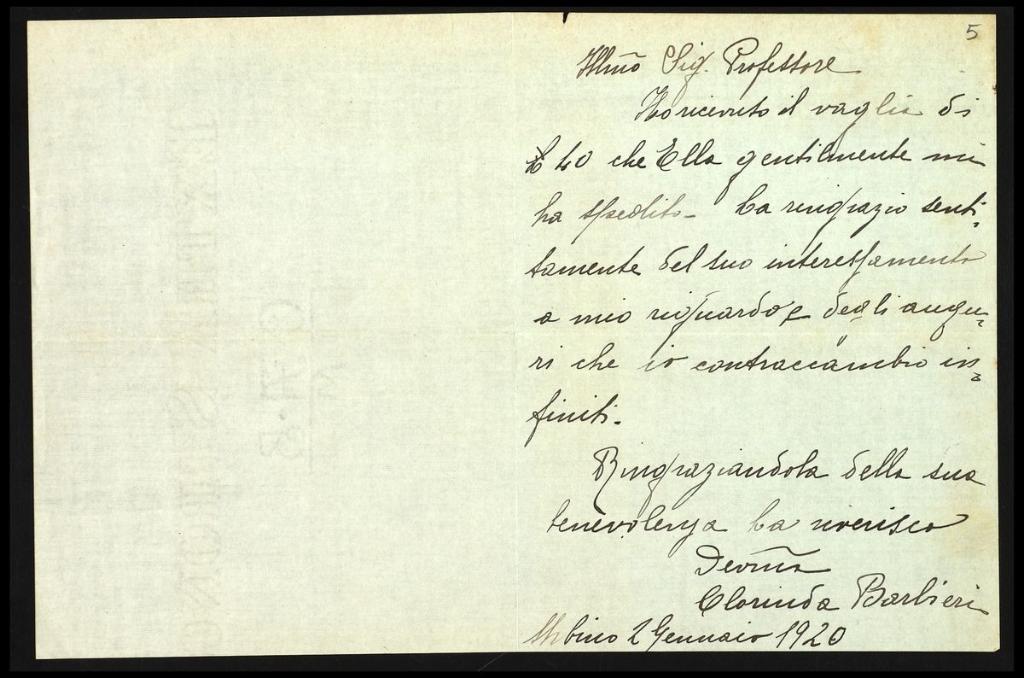 5
Illmo Sig. Professore
Ho ricevuto il vaglia di
£ 40 che Ella gentilmente mi
ha spedito - La ringrazio senti-
tamente del suo interessamento
a mio riguardo e degli augu-
ri che io contraccambio in-
finiti.
Ringraziandola della sua
benevolenza La riverisco
Devma
Clorinda Barbieri
2 Gennaio 1920